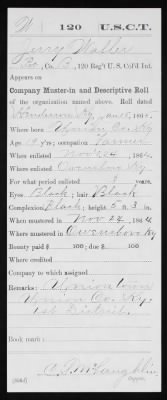 W | 120 | U.S.C.T.
Jerry Waller
Co. B, 120 Reg't U.S. Col'd Inf.
Appears on
Company Muster-in and Descriptive Roll
of the organization named above. Roll dated
Henderson Ky, 186
Where born Union Co. Ky
Age 19 y'rs; occupation Farmer
When enlisted Nov 24, 1864
Where enlisted Owensboro Ky
For what period enlisted years.
Eyes Black; hair Black
Complexion Black; height 5 ft. 3 in.
When mustered in Nov 24, 1864
Where mustered in Owensboro Ky
Bounty paid $ 100; due $ 100
Where credited
Company to which assigned
Remarks: Union town
Union Co. Ky.
1st District
Book mark:
Copyist.